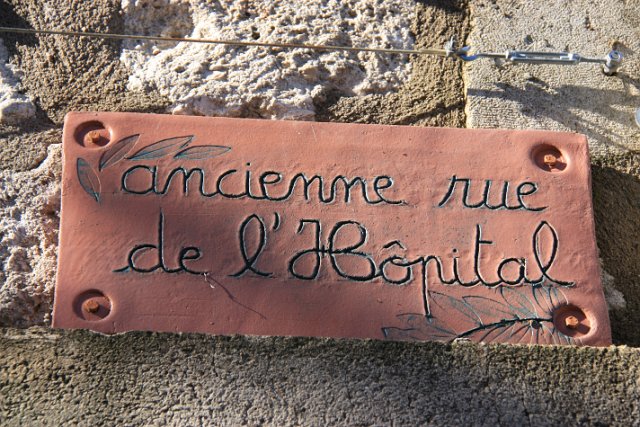 ancienne rue
de l'Hôpital